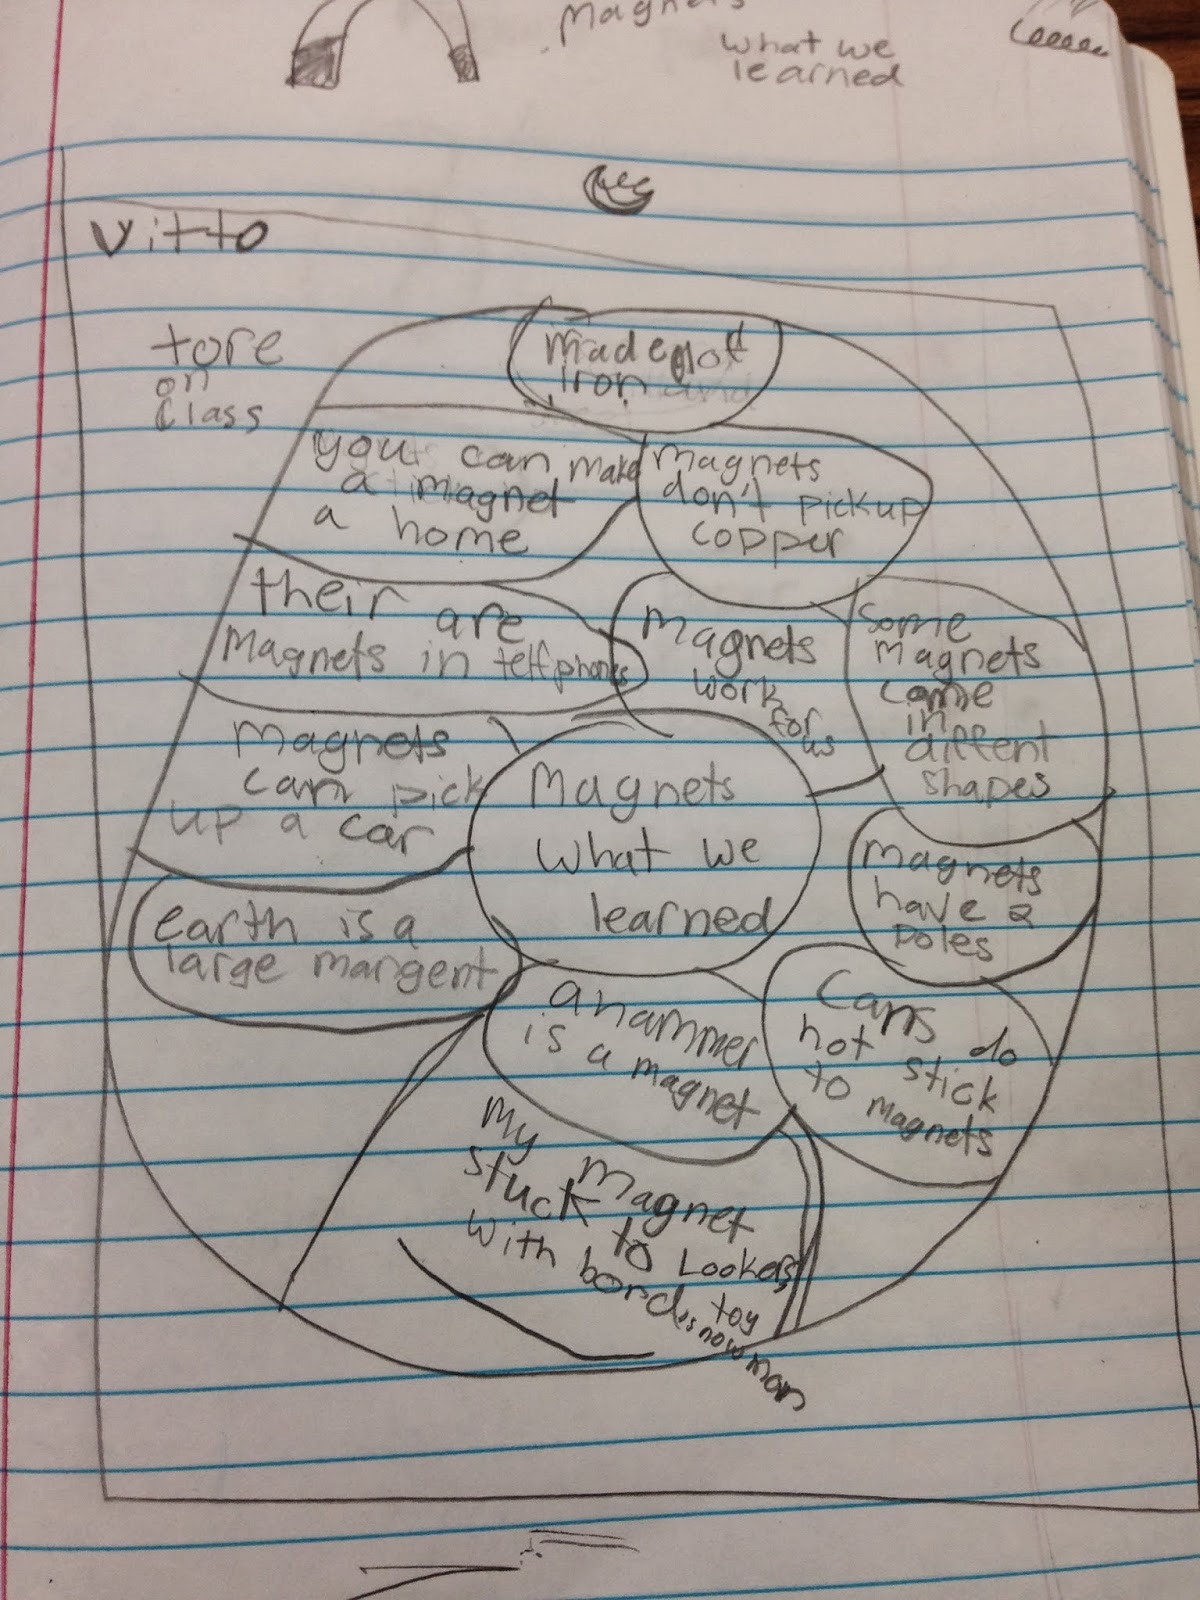 Magnets
what we
learned
vitto
tore
on
Class
Made of
Iron
you can make
a magnet
a home
Magnets
don't pickup
copper
their are
Magnets in
Magnets
work
for
us
Some
magnets
came
in
diffent
shapes
Magnets
can pick
up a car
Magnets
what we
learned
Magnets
have 2
poles
earth is a
large margent
a hammer
is a magnet
Cans do
not stick
to magnets
My magnet
stuck to Lookers
with bord toy
snowman